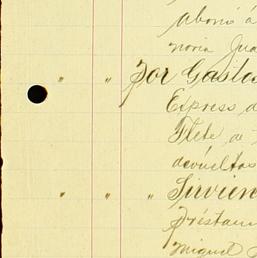 Abonó á
novia Jua
" " Por Gastos
Express d
Flete de
devueltos
" " " Sirvien
Préstam
Miguel